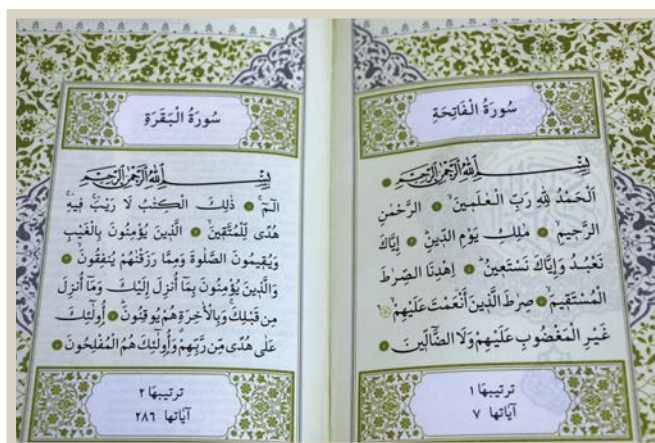 سُورَةُ الْفَاتِحَةِ
بِسْمِ اللهِ الرَّحْمٰنِ الرَّحِيمِ
اَلْحَمْدُ لِلهِ رَبِّ الْعٰلَمِينَ الرَّحْمٰنِ
الرَّحِيمِ مٰلِكِ يَوْمِ الدِّينِ إِيَّاكَ
نَعْبُدُ وَإِيَّاكَ نَسْتَعِينُ اِهْدِنَا الصِّرٰطَ
الْمُسْتَقِيمَ صِرٰطَ الَّذِينَ أَنْعَمْتَ عَلَيْهِمْ
غَيْرِ الْمَغْضُوبِ عَلَيْهِمْ وَلَا الضَّآلِّينَ
ترتيبها ١
آياتها ٧
سُورَةُ الْبَقَرَةِ
بِسْمِ اللهِ الرَّحْمٰنِ الرَّحِيمِ
الٓمٓ ذٰلِكَ الْكِتٰبُ لَا رَيْبَ فِيهِ
هُدًى لِلْمُتَّقِينَ الَّذِينَ يُؤْمِنُونَ بِالْغَيْبِ
وَيُقِيمُونَ الصَّلٰوةَ وَمِمَّا رَزَقْنٰهُمْ يُنفِقُونَ
وَالَّذِينَ يُؤْمِنُونَ بِمَآ أُنزِلَ إِلَيْكَ وَمَآ أُنزِلَ
مِن قَبْلِكَ وَبِالْأٰخِرَةِ هُمْ يُوقِنُونَ أُولٰٓئِكَ
عَلٰى هُدًى مِّن رَّبِّهِمْ وَأُولٰٓئِكَ هُمُ الْمُفْلِحُونَ
ترتيبها ٢
آياتها ٢٨٦